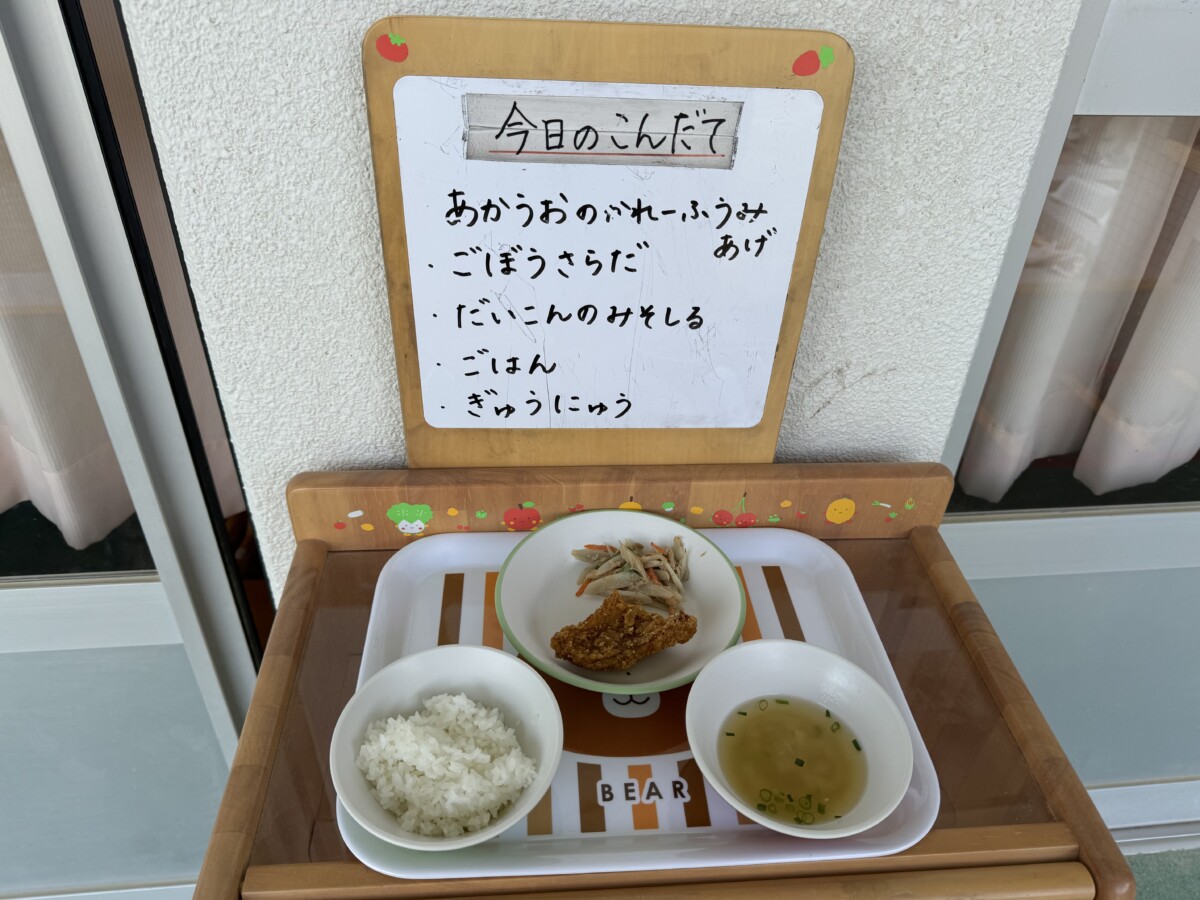 今日のこんだて
あかうおのかれーふうみ
あげ
・ごぼうさらだ
・だいこんのみそしる
・ごはん
・ぎゅうにゅう
BEAR